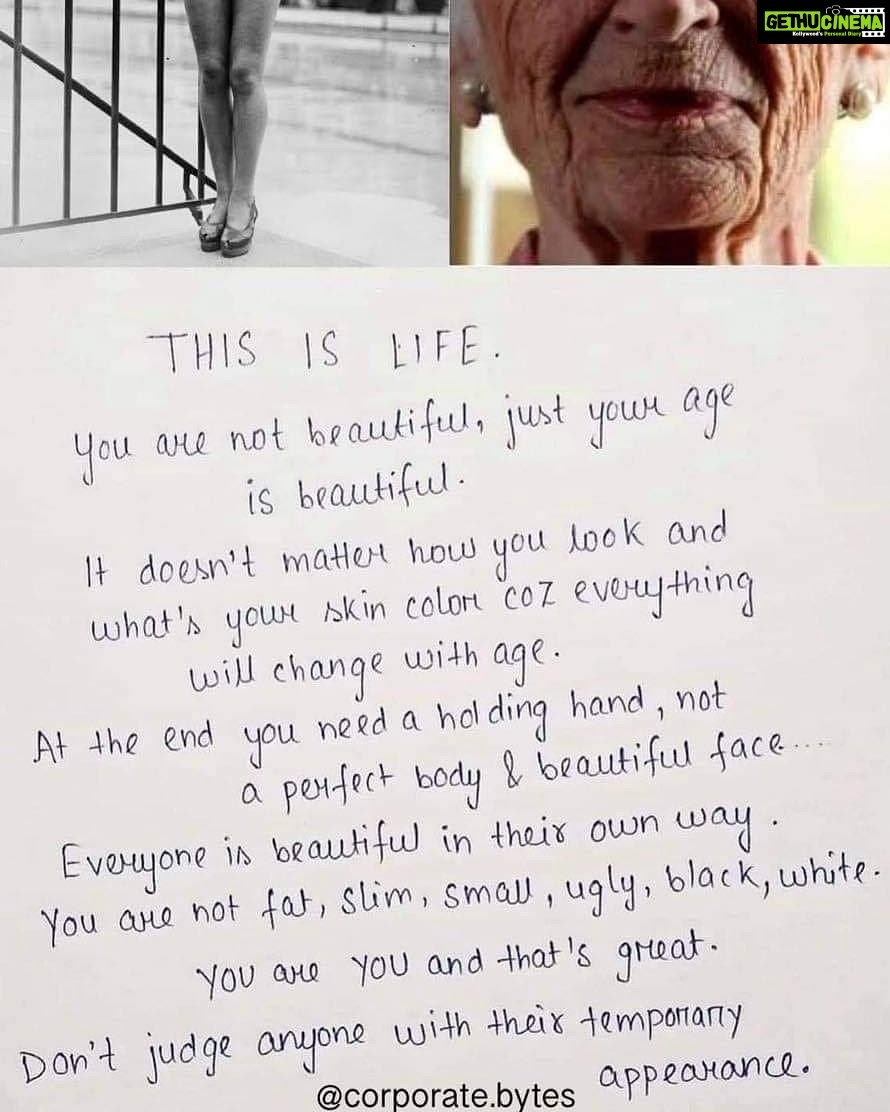 GETHUCINEMA
Kollywood's Personal Diary
THIS IS LIFE.
You are not beautiful, just your age
is beautiful.
It doesn't matter how you look and
what's your skin color coz everything
will change with age.
At the end you need a holding hand, not
a perfect body & beautiful face....
Everyone is beautiful in their own way.
You are not fat, slim, small, ugly, black, white.
YOU are YOU and that's great.
Don't judge anyone with their temporary
appearance.
@corporate.bytes